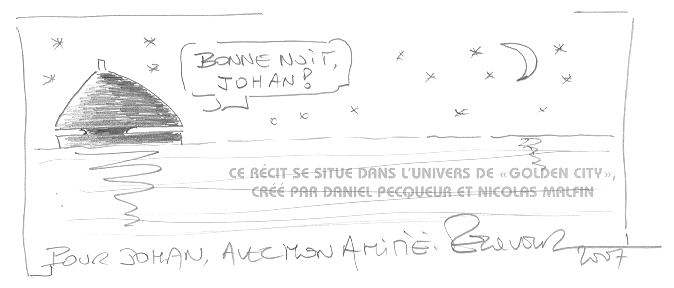 BONNE NUIT,
JOHAN!
CE RÉCIT SE SITUE DANS L'UNIVERS DE «GOLDEN CITY»,
CRÉÉ PAR DANIEL PECQUEUR ET NICOLAS MALFIN
POUR JOHAN, AVEC MON AMITIÉ.
2007